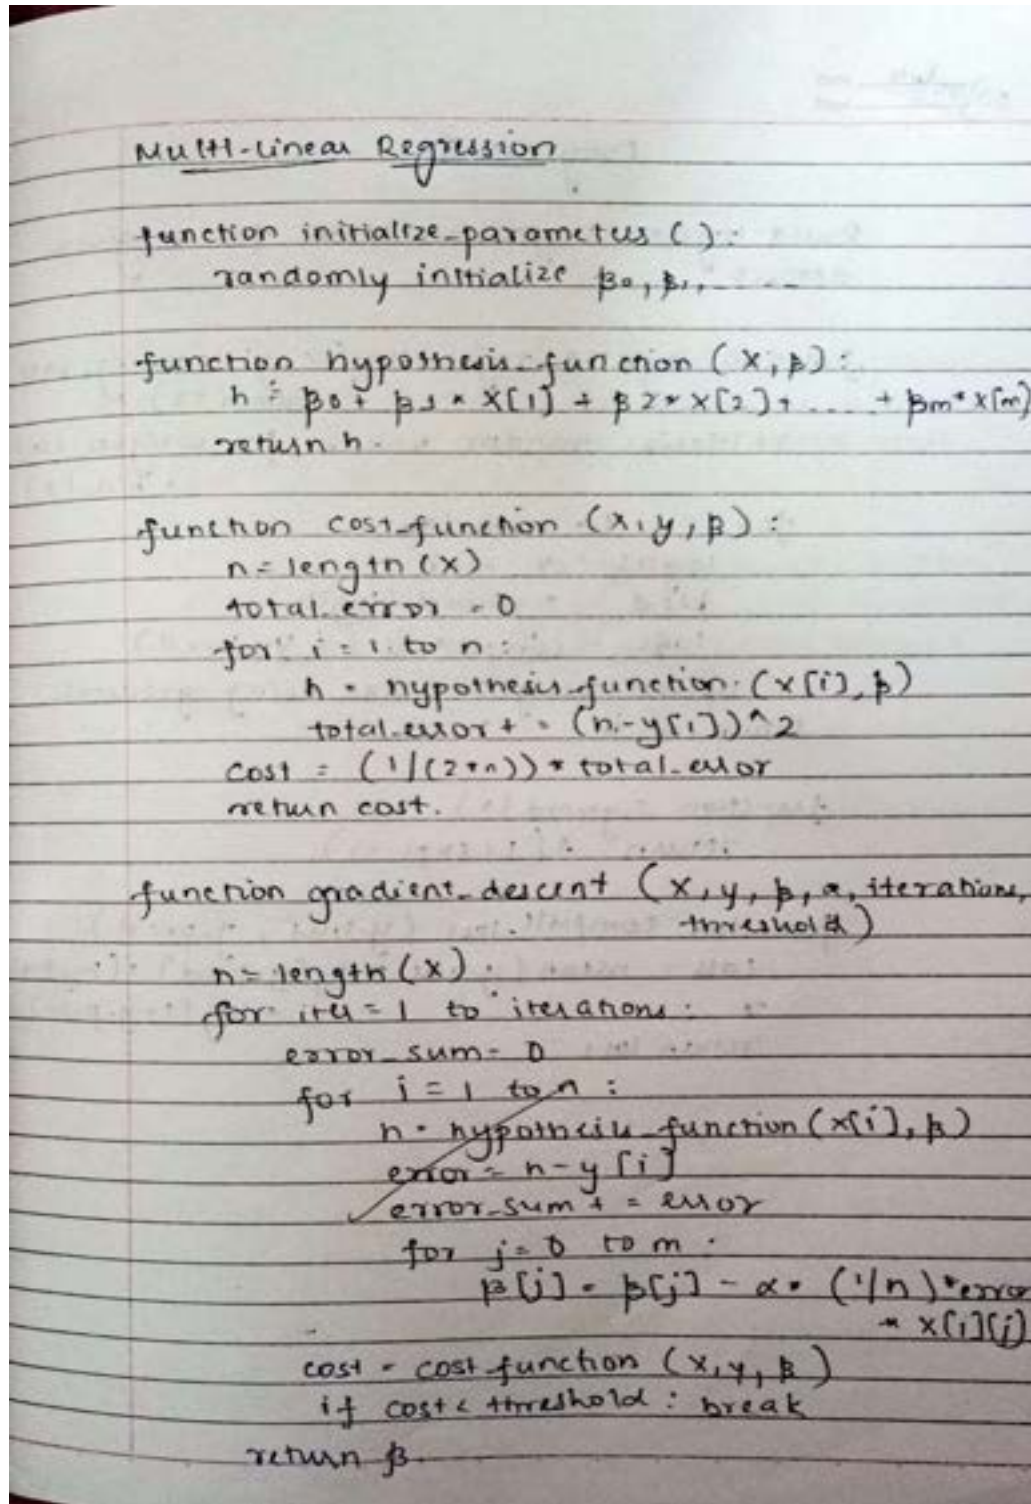 Multi-linear Regression
function initialize_parameters ( ):
randomly initialize β0, β1, ......
function hypothesis_function (X, β):
h = β0 + β1 * X[1] + β2 * X[2] + .... + βm * X[m]
return h.
function cost_function (x, y, β):
n = length (X)
total_error = 0
for i = 1 to n:
h = hypothesis_function (x[i], β)
total_error += (h - y[i])^2
cost = (1/(2*n)) * total_error
return cost.
function gradient_descent (X, y, β, α, iterations,
threshold)
n = length (X)
for iter = 1 to iterations:
error_sum = 0
for i = 1 to n:
h = hypothesis_function (x[i], β)
error = h - y[i]
error_sum += error
for j = 0 to m:
β[j] = β[j] - α * (1/n) * error
* X[i][j]
cost = cost_function (X, y, β)
if cost < threshold : break
return β.